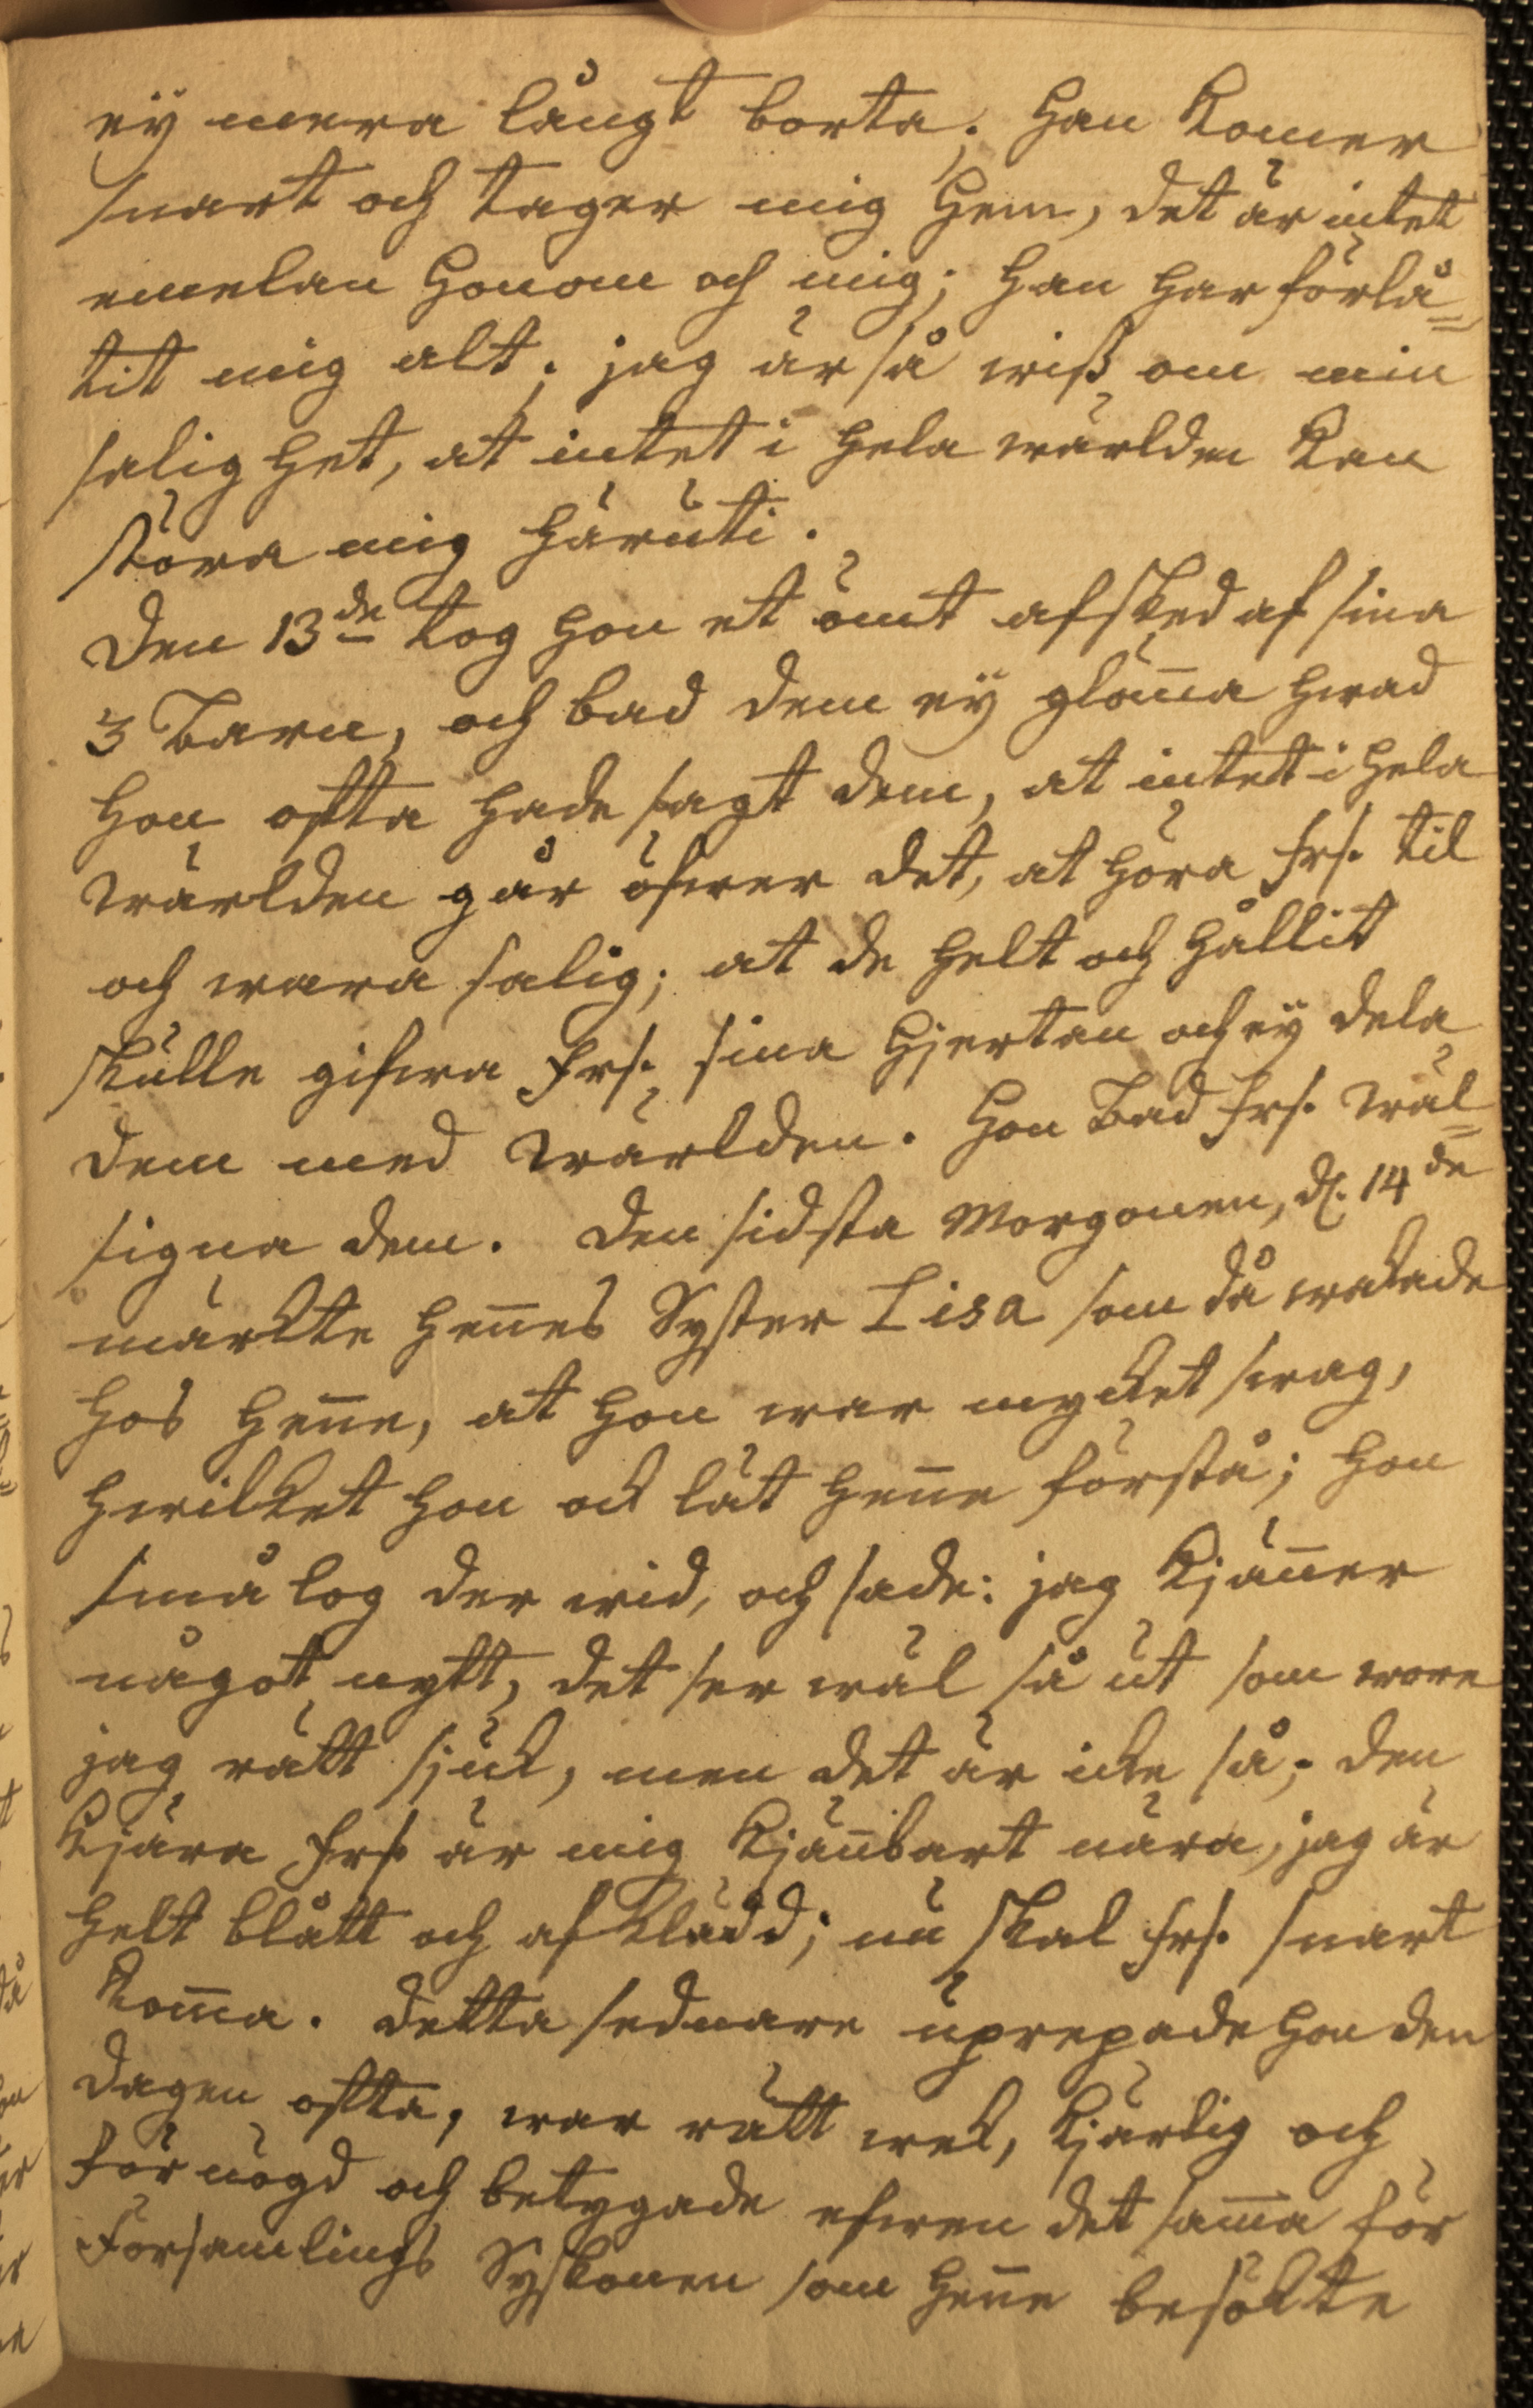 ey mera långt borta. Han Komer
snart och tager mig Hem, det är intet
emelan Honom och mig; Han Har förlå=
tit mig alt. jag är så wiß om min
saligHet, at intet i Hela wärlden Kan
störa mig Häruti.
Den 13de tog Hon et ömt afsked af sina
3 Barn, och bad dem ey glöm̄a Hwad
Hon ofta Hade sagt dem, at intet i Hela
Wärlden går öfwer det, at Höra Frs. til
och wara salig; at de Helt och Hållit
skulle gifwa Frs. sina Hjertan och ey dela
dem med Wärlden. Hon Bad Frs. wäl=
signa dem. Den sidsta Morgonen, d. 14de
märckte Hen̄es Syster Lisa som då wakade
Hos Hen̄e, at Hon war mycket swag,
Hwilket Hon ock lät Hen̄e förstå; Hon
smålog der wid, och sade: jag Kjän̄er
något nytt, det ser wäl så ut som wore
jag rätt sjuk, men det är icke så; den
Kjära Frs. är mig Kjän̄bart nära, jag är
Helt blått och afKlädd; nu skal Frs. snart
Kom̄a. Detta sednare uprepade Hon den
dagen ofta, war rätt wek, Kjärlig och
förnögd och betygade efwen det sam̄a för
Församlings Syskonen som Hen̄e besökte